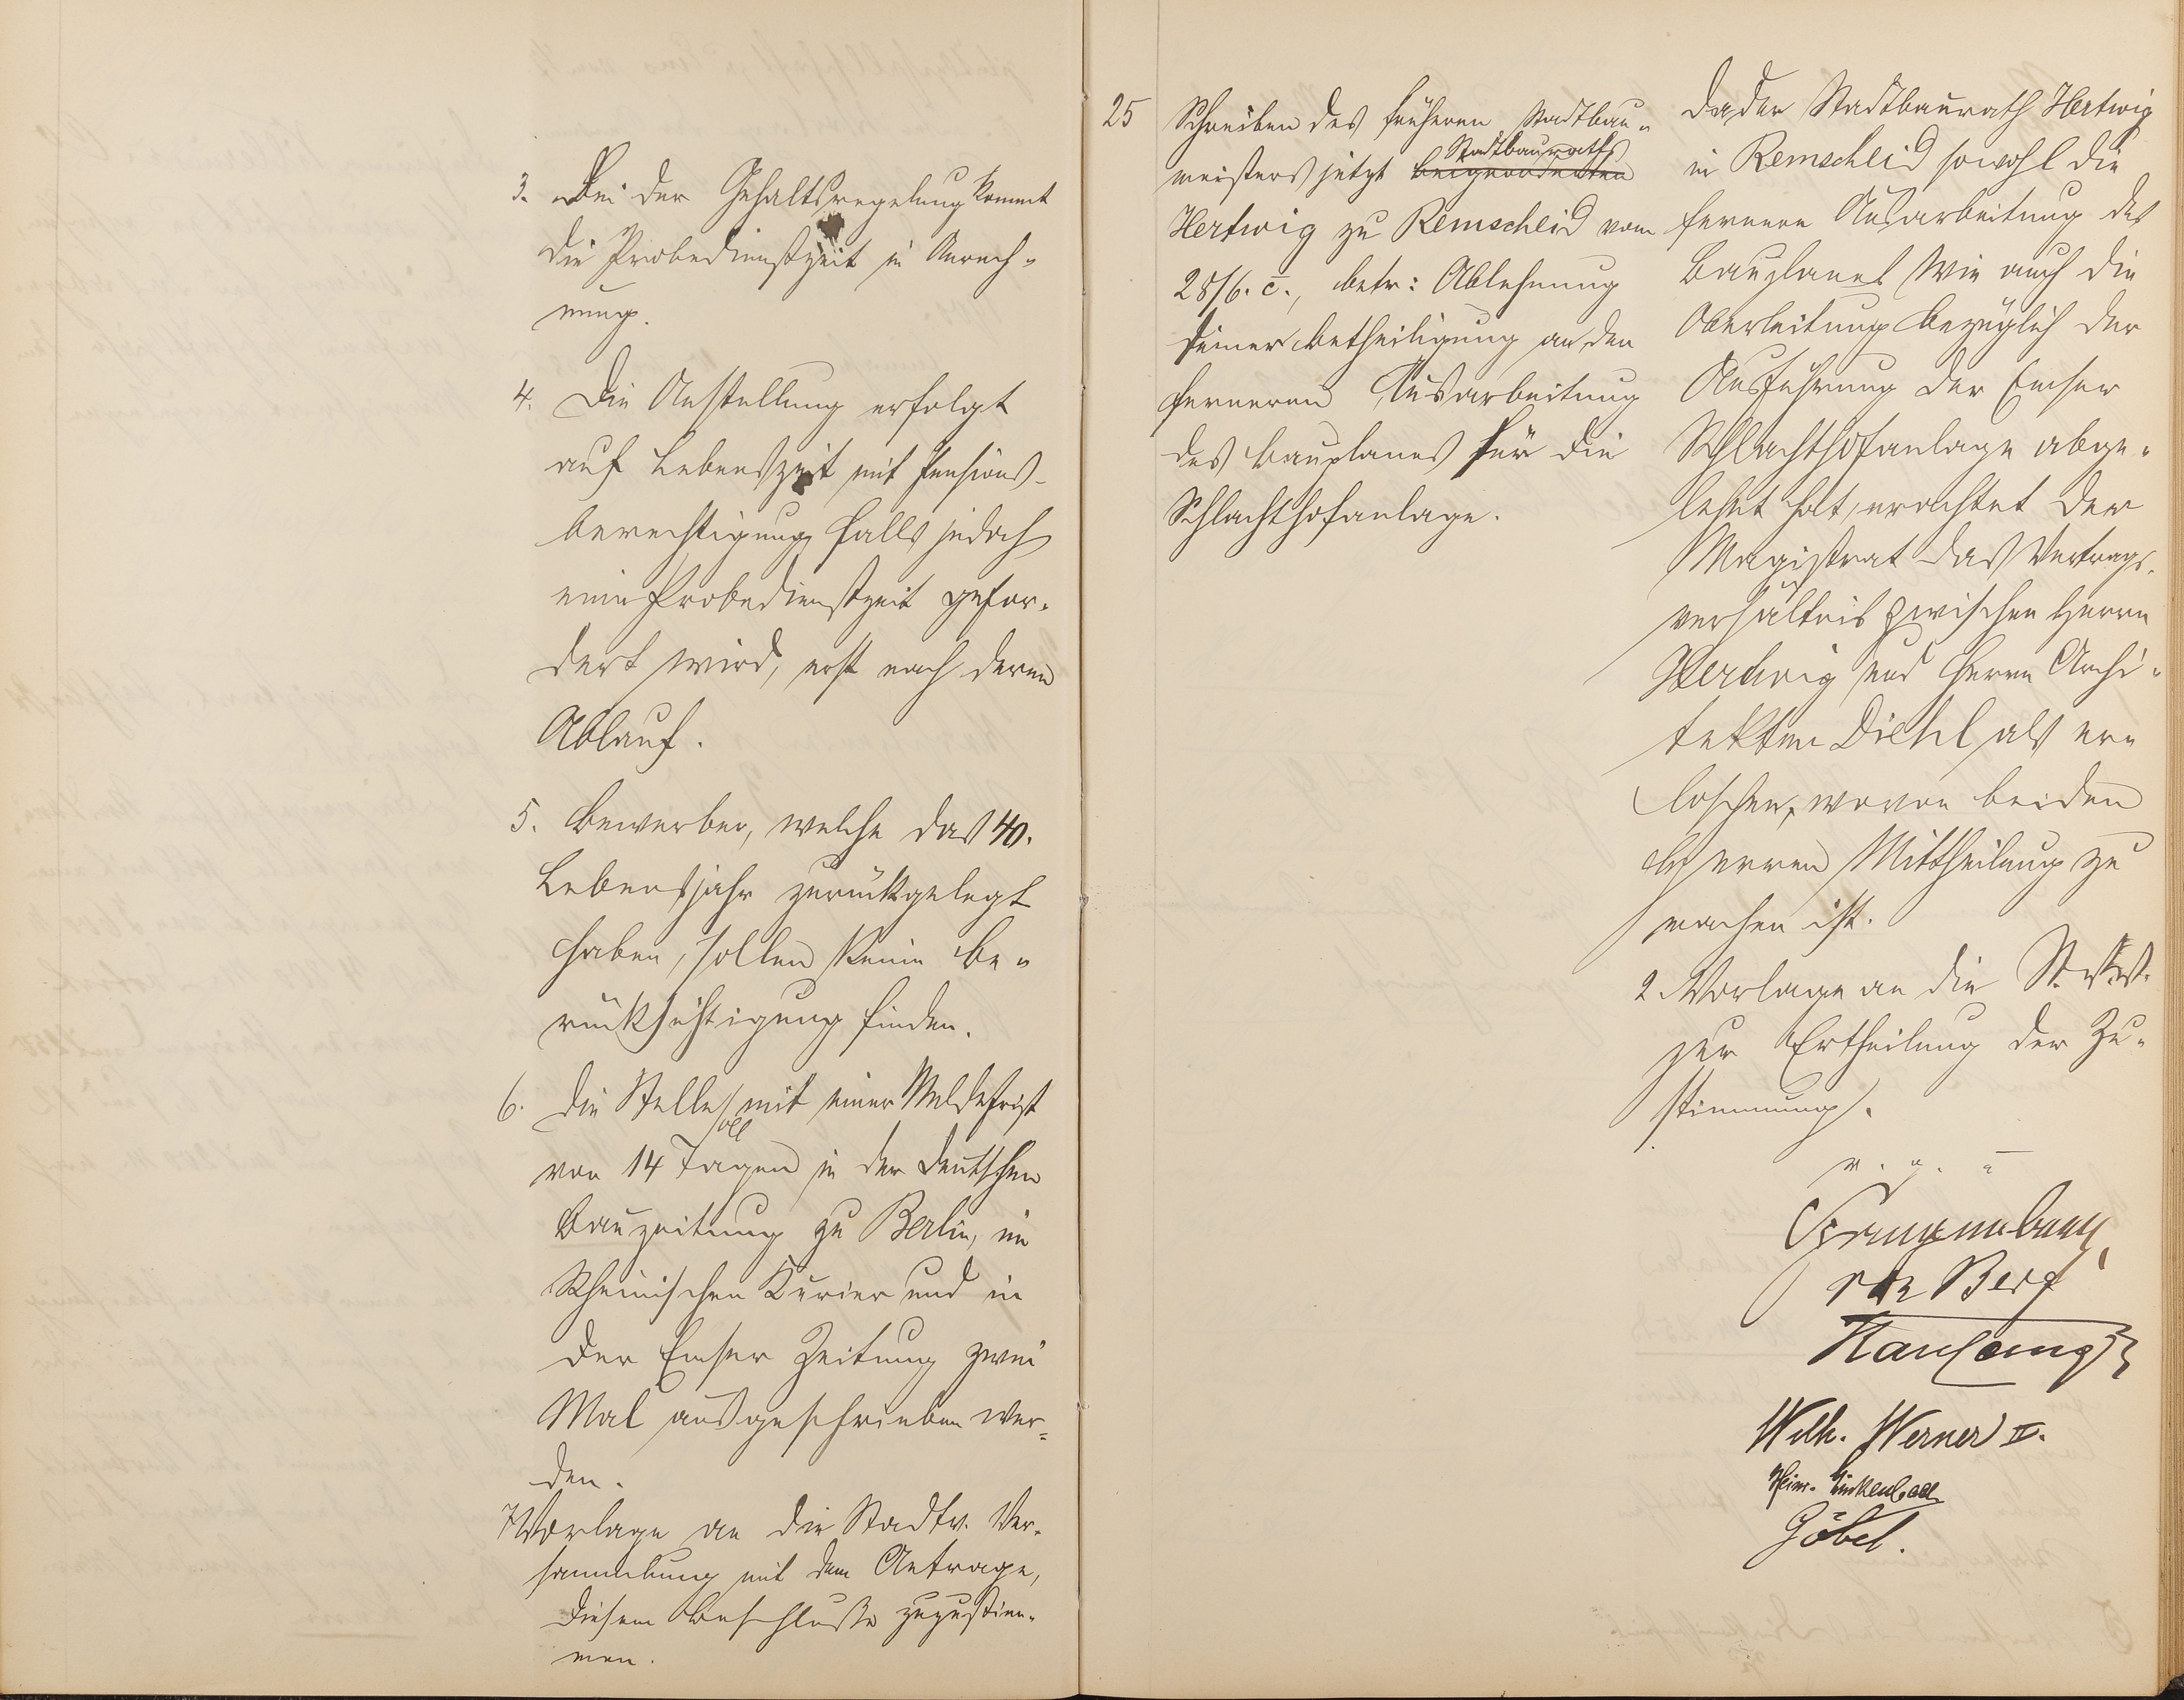 3. Bei der Gehaltsregelung kommt
die Probedienstzeit in Anrech-
nung.
4. Die Anstellung erfolgt
auf Lebenszeit mit Pensions-
berechtigung falls jedoch
eine Probedienstzeit gefor-
dert wird, erst nach deren
Ablauf.
5. Bewerber, welche das 40.
Lebensjahr zurückgelegt
haben, sollen keine Be-
rücksichtigung finden.
6. Die Stelle soll mit einer Meldefrist
von 14 Tagen in der deutschen
Bauzeitung zu Berlin, im
Rheinischen Kurier und in
der Emser Zeitung zwei
Mal ausgeschrieben wer-
den.
7 Vorlage an die Stadtv. Ver-
sammlung mit dem Antrage,
diesem Beschlusse zuzustim-
men.
25
Schreiben des früheren Stadtbau-
meisters jetzt Beigeordneten Stadtbauraths
Hertwig zu Remscheid vom
28/6. c., betr: Ablehnung
seiner Betheiligung an der
ferneren Ausarbeitung
des Bauplanes für die
Schlachthofanlage.
Da der Stadtbaurath Hertwig
in Remscheid sowohl die
fernere Ausarbeitung des
Bauplanes wie auch die
Oberleitung bezüglich der
Ausführung der Emser
Schlachthofanlage abge-
lehnt hat, erachtet der
Magistrat das Vertrags-
verhältnis zwischen Herrn
Hertwig und Herrn Archi-
tekten Diehl als er-
loschen, wovon beiden
Herren Mittheilung zu
machen ist.
2. Vorlage an die St. V. V.
zur Ertheilung der Zu-
stimmung.
v. g. u
Spangenberg
Berg
Wilh. Werner II.
Heinr. Linkenbach
Göbel.